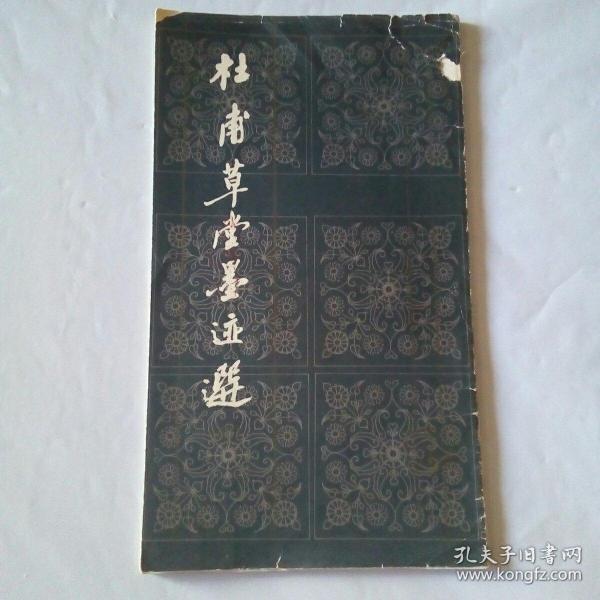 杜甫草堂墨迹選
孔夫子旧書网
www.kongfz.com